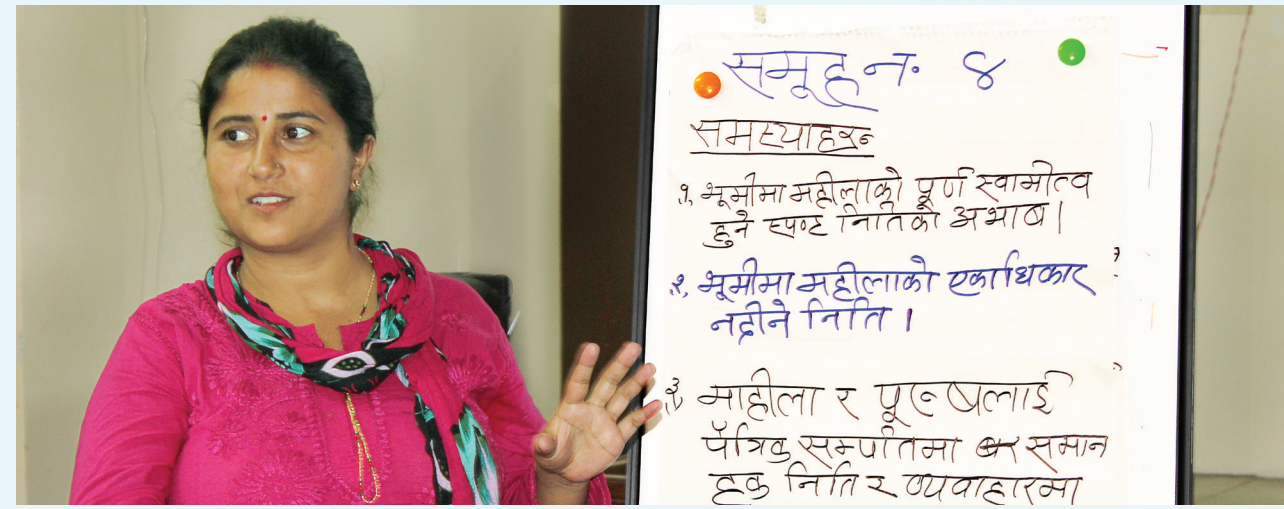 समूह नं. ४
समस्याहरू
१. भूमीमा महीलाको पूर्ण स्वामीत्व
हुने स्पष्ट नितिको अभाब।
२. भूमीमा महीलाको एकाधिकार
नदीने निति ।
३. माहीला र पूरूषलाई
पैत्रिक सम्पतिमा समान
हक निति र व्यवाहारमा